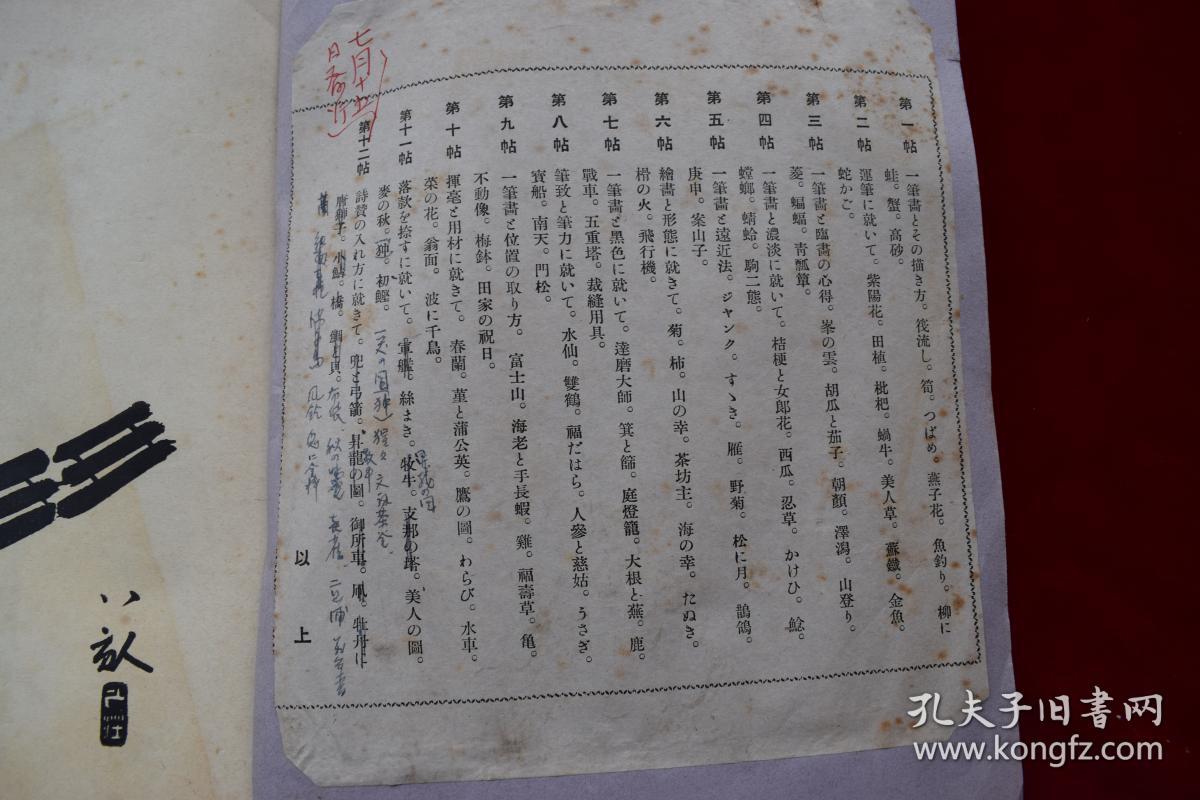 第一帖 一筆畫とその描き方。筏流し。筍。つばめ。燕子花。魚釣り。柳に
蛙。蟹。高砂。
第二帖 運筆に就いて。紫陽花。田植。枇杷。蝸牛。美人草。蘇鐵。金魚。
蛇かご。
第三帖 一筆畫と臨畫の心得。峯の雲。胡瓜と茄子。朝顏。澤潟。山登り。
菱。蝙蝠。靑瓢簞。
第四帖 一筆畫と濃淡に就いて。桔梗と女郞花。西瓜。忍草。かけひ。鯰。
螳螂。蜻蛉。駒二態。
第五帖 一筆畫と遠近法。ジャンク。すゝき。雁。野菊。松に月。鶺鴒。
庚申。案山子。
第六帖 繪畫と形態に就きて。菊。柿。山の幸。茶坊主。海の幸。たぬき。
榾の火。飛行機。
第七帖 一筆畫と黑色に就いて。達磨大師。箕と篩。庭燈籠。大根と蕪。鹿。
戰車。五重塔。裁縫用具。
第八帖 筆致と筆力に就いて。水仙。雙鶴。福だはら。人參と慈姑。うさぎ。
寶船。南天。門松。
第九帖 一筆畫と位置の取り方。富士山。海老と手長蝦。雞。福壽草。亀。
不動像。梅鉢。田家の祝日。
第十帖 揮毫と用材に就きて。春蘭。菫と蒲公英。鷹の圖。わらび。水車。
菜の花。翁面。波に千鳥。
第十一帖 落款を捺すに就いて。軍艦。絲まき。牧牛。支那の塔。美人の圖。
麥の秋。初鰹。
第十二帖 詩賛の入れ方に就きて。兜と弓箭。昇龍の圖。御所車。凧。牡丹に
唐獅子。小鯖。橋。
以上
七月十五
八畝
孔夫子旧书网
www.kongfz.com